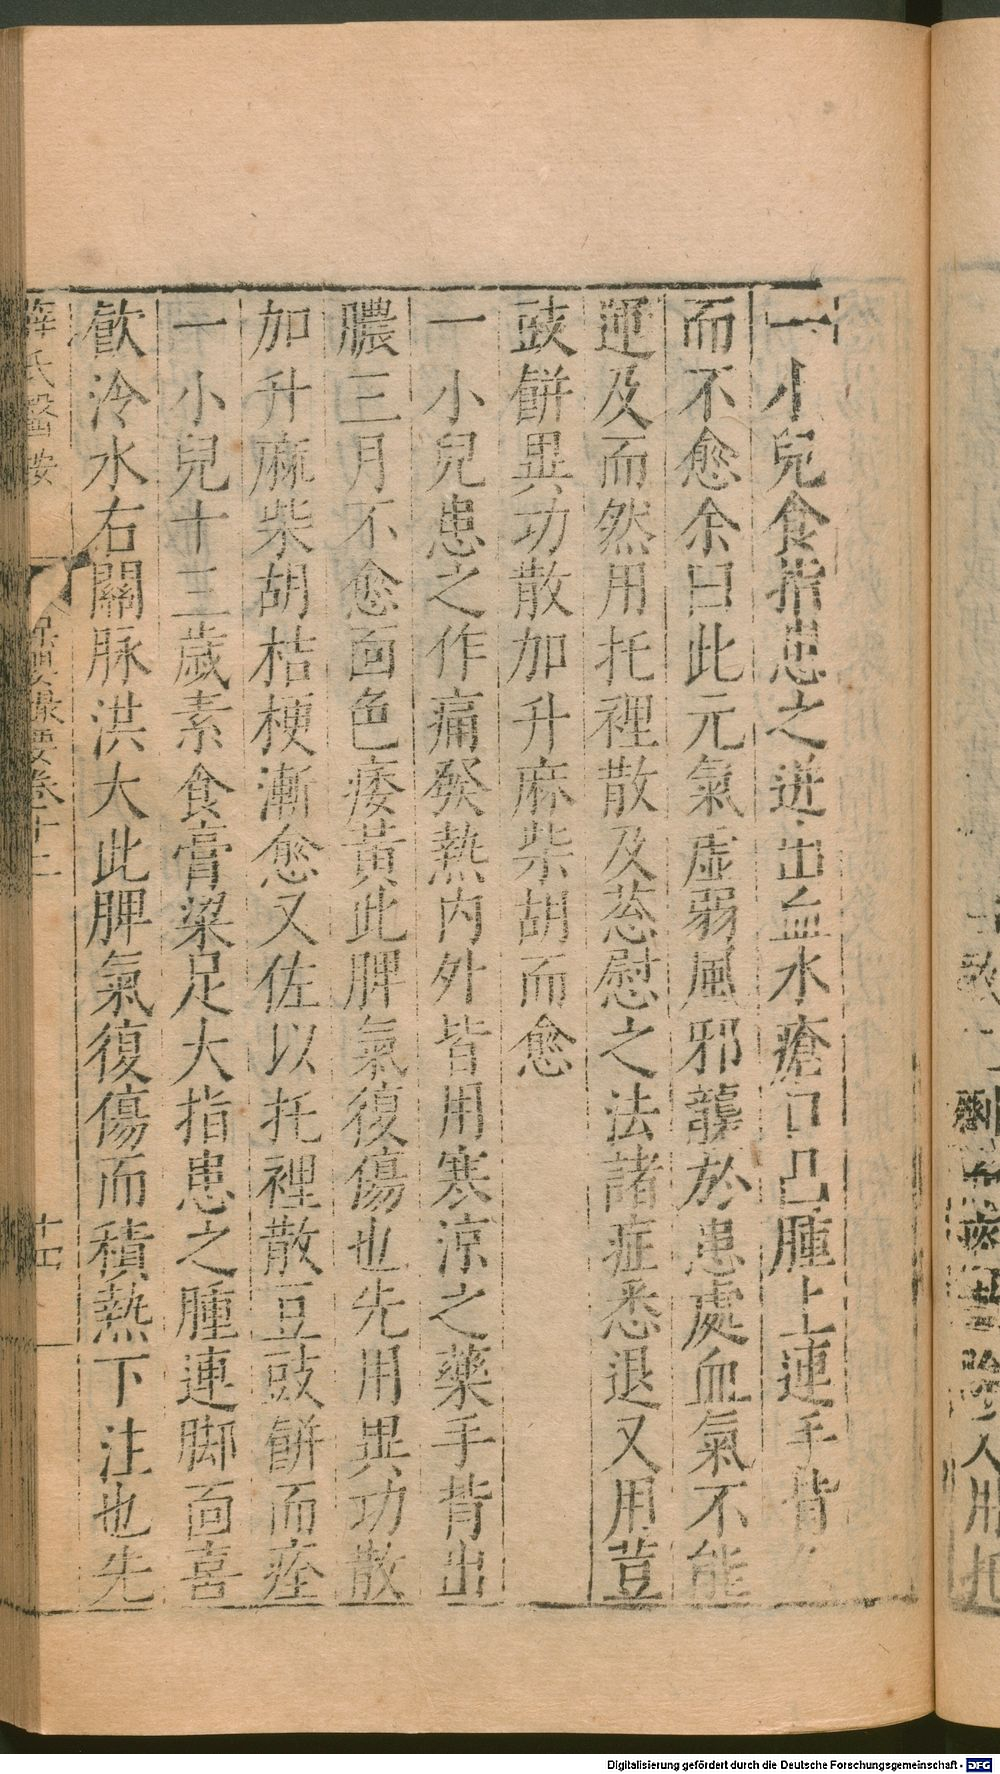 一小兒食指患之迸出血水瘡口凸腫上連手背
而不愈余曰此元氣虛弱風邪襲於患處血氣不能
運及而然用托裡散及葱慰之法諸症悉退又用荳
豉餅異功散加升麻柴胡而愈
一小兒患之作痛發熱內外皆用寒涼之藥手背出
膿三月不愈面色痿黃此脾氣復傷也先用異功散
加升麻柴胡桔梗漸愈又佐以托裡散豆豉餅而痊
一小兒十三歲素食膏粱足大指患之腫連脚面喜
飲冷水右關脉洪大此脾氣復傷而積熱下注也先
薛氏醫按
保嬰撮要卷十二
十四
Digitalisierung gefördert durch die Deutsche Forschungsgemeinschaft - DFG